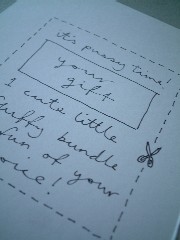 it's time!
your
gift
1 cute little
fluffy bundle
fun of your
oice!